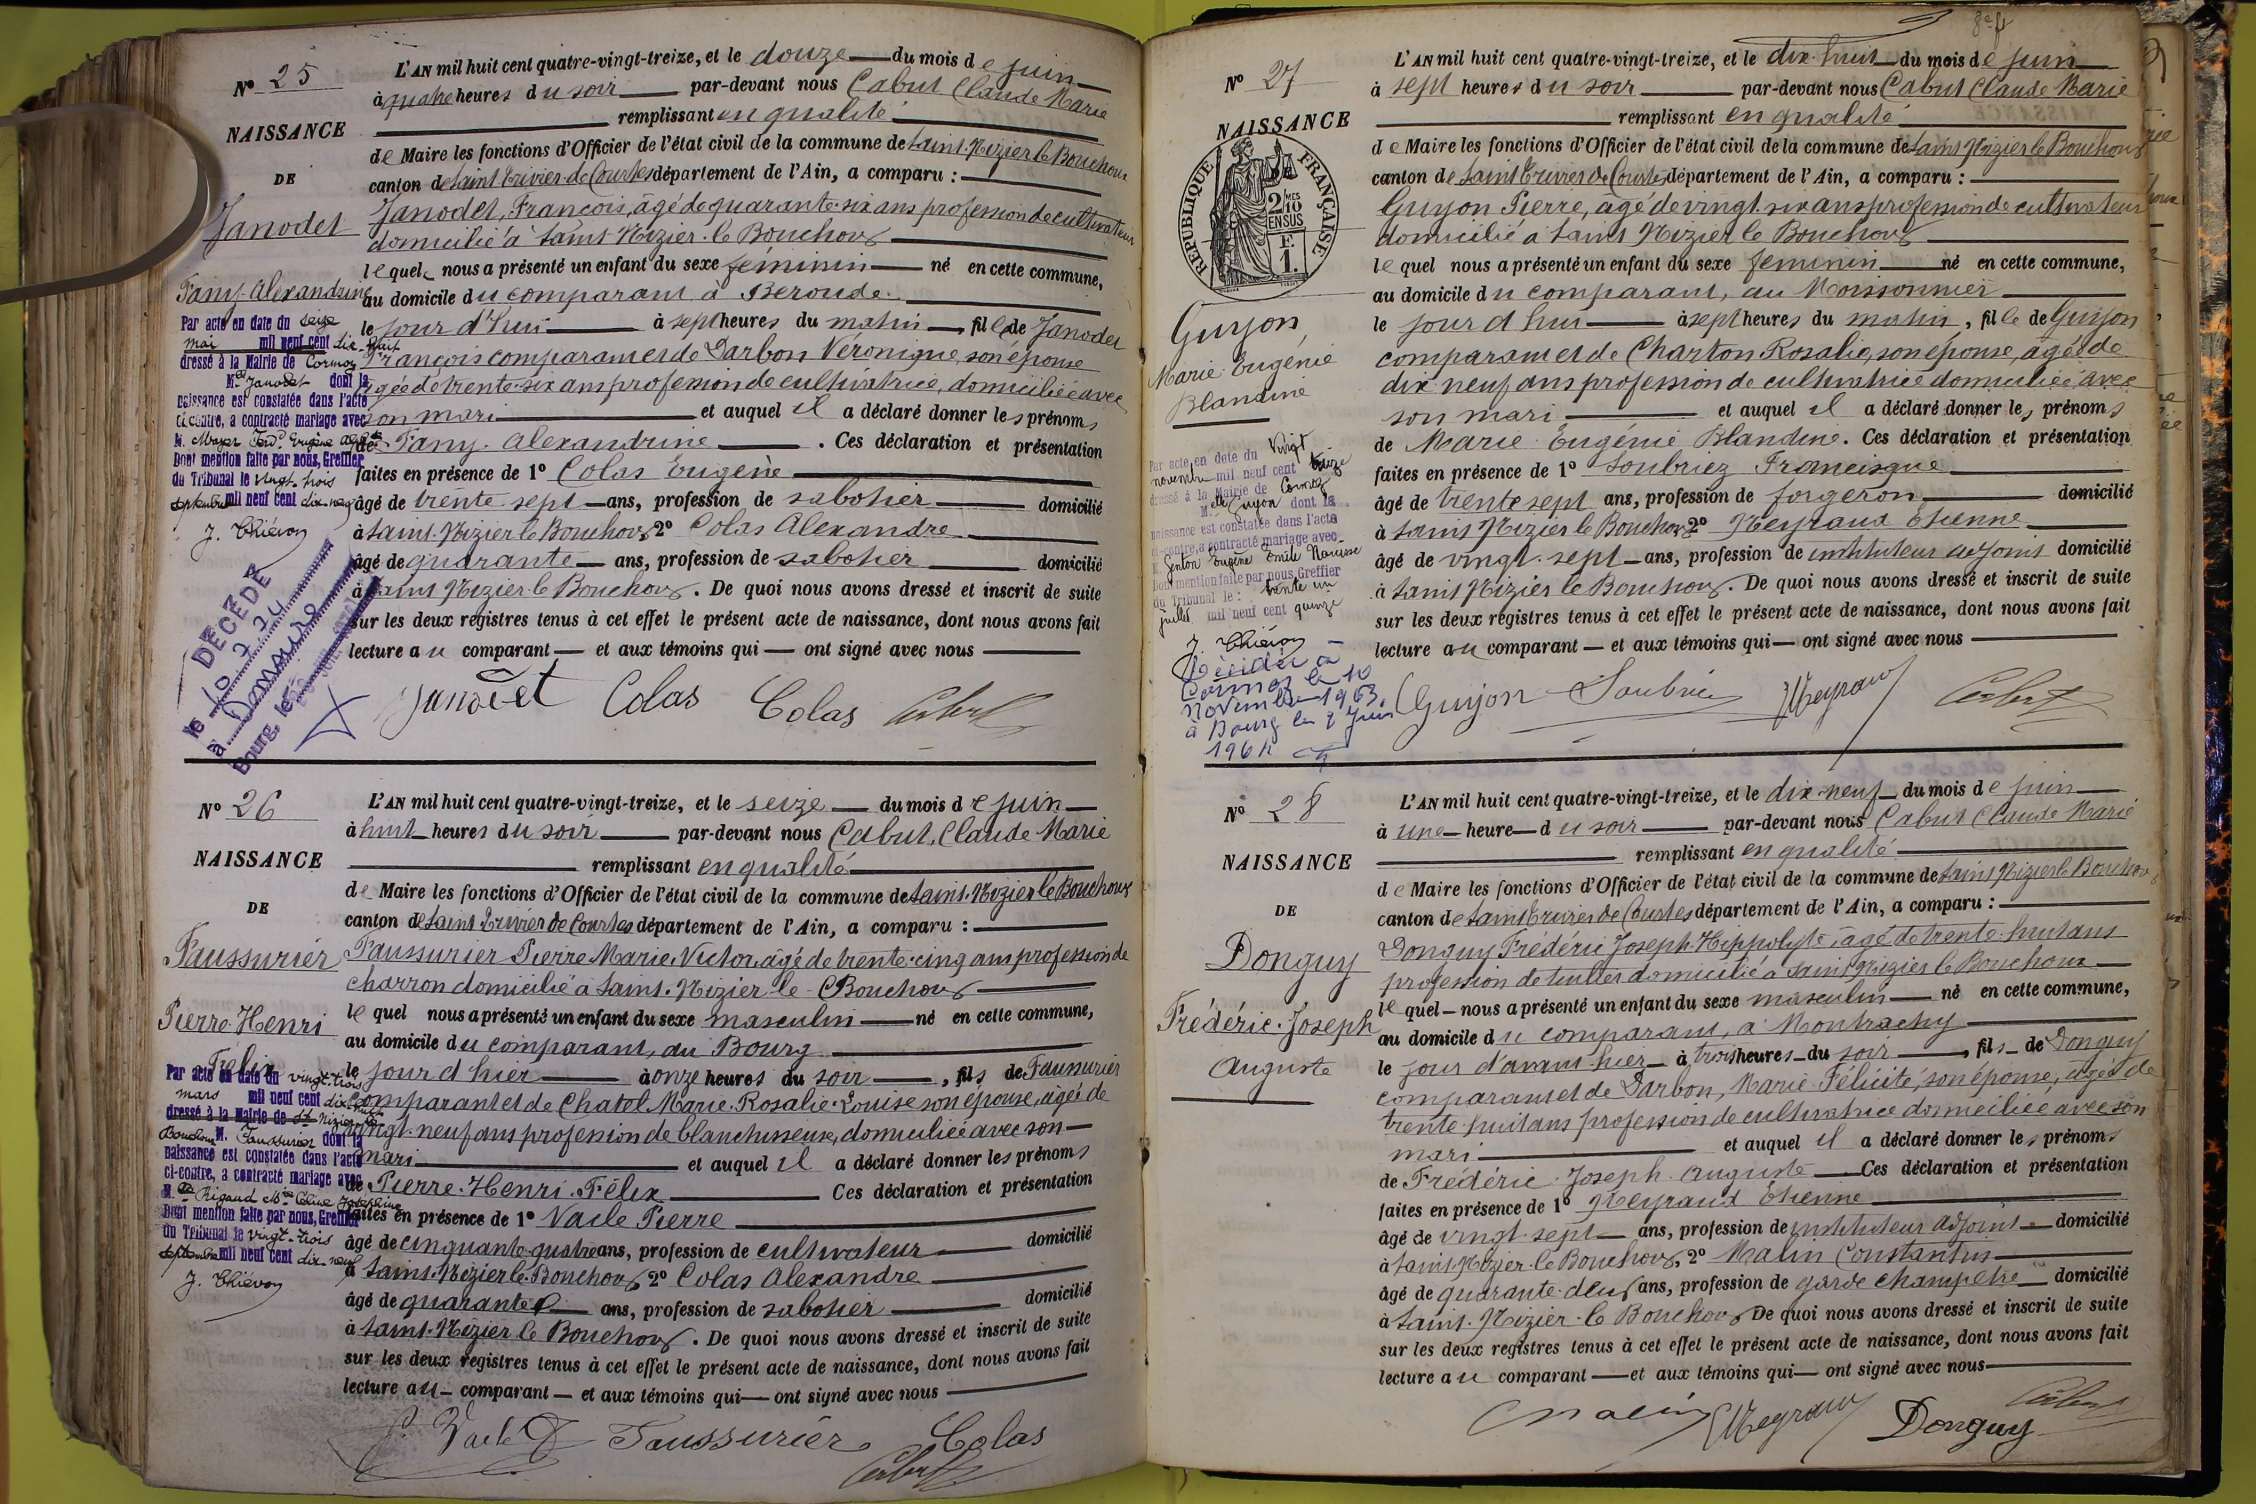 N° 25
NAISSANCE
DE
Janodet
Fany-Alexandrine
Par acte en date du seize
mai mil neuf cent dix-huit
dressé à la Mairie de Cormoz
Melle Janodet dont la
naissance est constatée dans l'acte
ci-contre, a contracté mariage avec
M. Mayer Ferd. Eugène
Dont mention faite par nous, Greffier
du Tribunal le vingt-trois
septembre mil neuf cent dix-neuf
J. Thiévon
DÉCÉDÉ
le 10
à
Bourg, le
L'AN mil huit cent quatre-vingt-treize, et le douze du mois de juin
à quatre heures du soir par-devant nous Cabut Claude Marie
remplissant en qualité
de Maire les fonctions d'Officier de l'état civil de la commune de Saint-Nizier le Bouchoux
canton de Saint Trivier de Courtes département de l'Ain, a comparu :
Janodet, François, âgé de quarante-six ans profession de cultivateur
domicilié à Saint Nizier-le Bouchoux
lequel nous a présenté un enfant du sexe feminin né en cette commune,
au domicile du comparant à Beroude
le jour d'hui à sept heures du matin, fille de Janodet
François comparant et de Darbon Veronique, son épouse
âgée de trente-six ans profession de cultivatrice, domiciliée avec
son mari et auquel il a déclaré donner les prénoms
de Fany-Alexandrine. Ces déclaration et présentation
faites en présence de 1° Colas Eugène
âgé de trente sept ans, profession de sabotier domicilié
à Saint-Nizier le Bouchoux, 2° Colas Alexandre
âgé de quarante ans, profession de sabotier domicilié
à Saint Nizier-le Bouchoux. De quoi nous avons dressé et inscrit de suite
sur les deux registres tenus à cet effet le présent acte de naissance, dont nous avons fait
lecture au comparant et aux témoins qui ont signé avec nous
Janodet Colas Colas Cabut
N° 26
NAISSANCE
DE
Faussurier
Pierre-Henri
Félix
Par acte en date du vingt-trois
mars mil neuf cent dix-huit
dressé à la Mairie de St Nizier le
Bouchoux M. Faussurier dont la
naissance est constatée dans l'acte
ci-contre, a contracté mariage avec
Melle Rigaud Mie Céline Joséphine
Dont mention faite par nous, Greffier
du Tribunal le vingt-trois
septembre mil neuf cent dix-neuf
J. Thiévon
L'AN mil huit cent quatre-vingt-treize, et le seize du mois de juin
à huit heures du soir par-devant nous Cabut, Claude Marie
remplissant en qualité
de Maire les fonctions d'Officier de l'état civil de la commune de Saint-Nizier le Bouchoux
canton de Saint Trivier de Courtes département de l'Ain, a comparu :
Faussurier Pierre Marie Victor, âgé de trente-cinq ans profession de
charron domicilié à Saint-Nizier-le-Bouchoux
lequel nous a présenté un enfant du sexe masculin né en cette commune,
au domicile du comparant, au Bourg
le jour d'hier à onze heures du soir, fils de Faussurier
comparant et de Chatel Marie-Rosalie-Louise son épouse, âgée de
vingt-neuf ans profession de blanchisseuse, domiciliée avec son
mari et auquel il a déclaré donner les prénoms
de Pierre-Henri-Félix Ces déclaration et présentation
faites en présence de 1° Vaile Pierre
âgé de cinquante-quatre ans, profession de cultivateur domicilié
à Saint-Nizier le Bouchoux 2° Colas Alexandre
âgé de quarante ans, profession de sabotier domicilié
à Saint-Nizier le Bouchoux. De quoi nous avons dressé et inscrit de suite
sur les deux registres tenus à cet effet le présent acte de naissance, dont nous avons fait
lecture au comparant et aux témoins qui ont signé avec nous
Faussurier Colas
Cabut
N° 27
NAISSANCE
RÉPUBLIQUE FRANÇAISE
2/10MES
EN SUS
F.
1.
Guyon,
Marie-Eugénie
Blandine
Par acte en date du vingt
novembre mil neuf cent treize
dressé à la Mairie de Cormoz
Melle Guyon dont la
naissance est constatée dans l'acte
ci-contre, a contracté mariage avec
M. Genton Eugène Emile Narcisse
Dont mention faite par nous, Greffier
du Tribunal le : trente un
juillet mil neuf cent quinze
J. Thiévon
Décédée à
Cormoz le 10
Novembre 1963
à Bourg le 8 Juin
1964
L'AN mil huit cent quatre-vingt-treize, et le dix-huit du mois de juin
à sept heures du soir par-devant nous Cabut Claude Marie
remplissant en qualité
de Maire les fonctions d'Officier de l'état civil de la commune de Saint Nizier le Bouchoux
canton de Saint Trivier de Courtes département de l'Ain, a comparu :
Guyon Pierre, âgé de vingt-six ans profession de cultivateur
domicilié à Saint Nizier le Bouchoux
lequel nous a présenté un enfant du sexe feminin né en cette commune,
au domicile du comparant, au Moissonnier
le jour d'hui à sept heures du matin, fille de Guyon
comparant et de Charton Rosalie, son épouse, âgée de
dix-neuf ans profession de cultivatrice domiciliée avec
son mari et auquel il a déclaré donner les prénoms
de Marie-Eugénie Blandine. Ces déclaration et présentation
faites en présence de 1° Soubriez Francisque
âgé de trente sept ans, profession de forgeron domicilié
à Saint Nizier le Bouchoux 2° Meyraud Etienne
âgé de vingt-sept ans, profession de instituteur adjoint domicilié
à Saint Nizier le Bouchoux. De quoi nous avons dressé et inscrit de suite
sur les deux registres tenus à cet effet le présent acte de naissance, dont nous avons fait
lecture au comparant et aux témoins qui ont signé avec nous
Guyon Soubriez Meyraud Cabut
N° 28
NAISSANCE
DE
Donguy
Frédéric-Joseph
Auguste
L'AN mil huit cent quatre-vingt-treize, et le dix-neuf du mois de juin
à une heure du soir par-devant nous Cabut Claude Marie
remplissant en qualité
de Maire les fonctions d'Officier de l'état civil de la commune de Saint Nizier le Bouchoux
canton de Saint Trivier de Courtes département de l'Ain, a comparu :
Donguy Frédéric Joseph Hippolyte, âgé de trente-huit ans
profession de tuilier domicilié à Saint Nizier le Bouchoux
lequel nous a présenté un enfant du sexe masculin né en cette commune,
au domicile du comparant, à Montrachy
le jour d'avant-hier à trois heures du soir, fils de Donguy
comparant et de Darbon, Marie-Félicité, son épouse, âgée de
trente-huit ans profession de cultivatrice domiciliée avec son
mari et auquel il a déclaré donner les prénoms
de Frédéric-Joseph-Auguste Ces déclaration et présentation
faites en présence de 1° Meyraud Etienne
âgé de vingt-sept ans, profession de instituteur adjoint domicilié
à Saint-Nizier-le Bouchoux, 2° Malin Constantin
âgé de quarante-deux ans, profession de garde champêtre domicilié
à Saint-Nizier-le Bouchoux De quoi nous avons dressé et inscrit de suite
sur les deux registres tenus à cet effet le présent acte de naissance, dont nous avons fait
lecture au comparant et aux témoins qui ont signé avec nous
Malin Meyraud Donguy Cabut